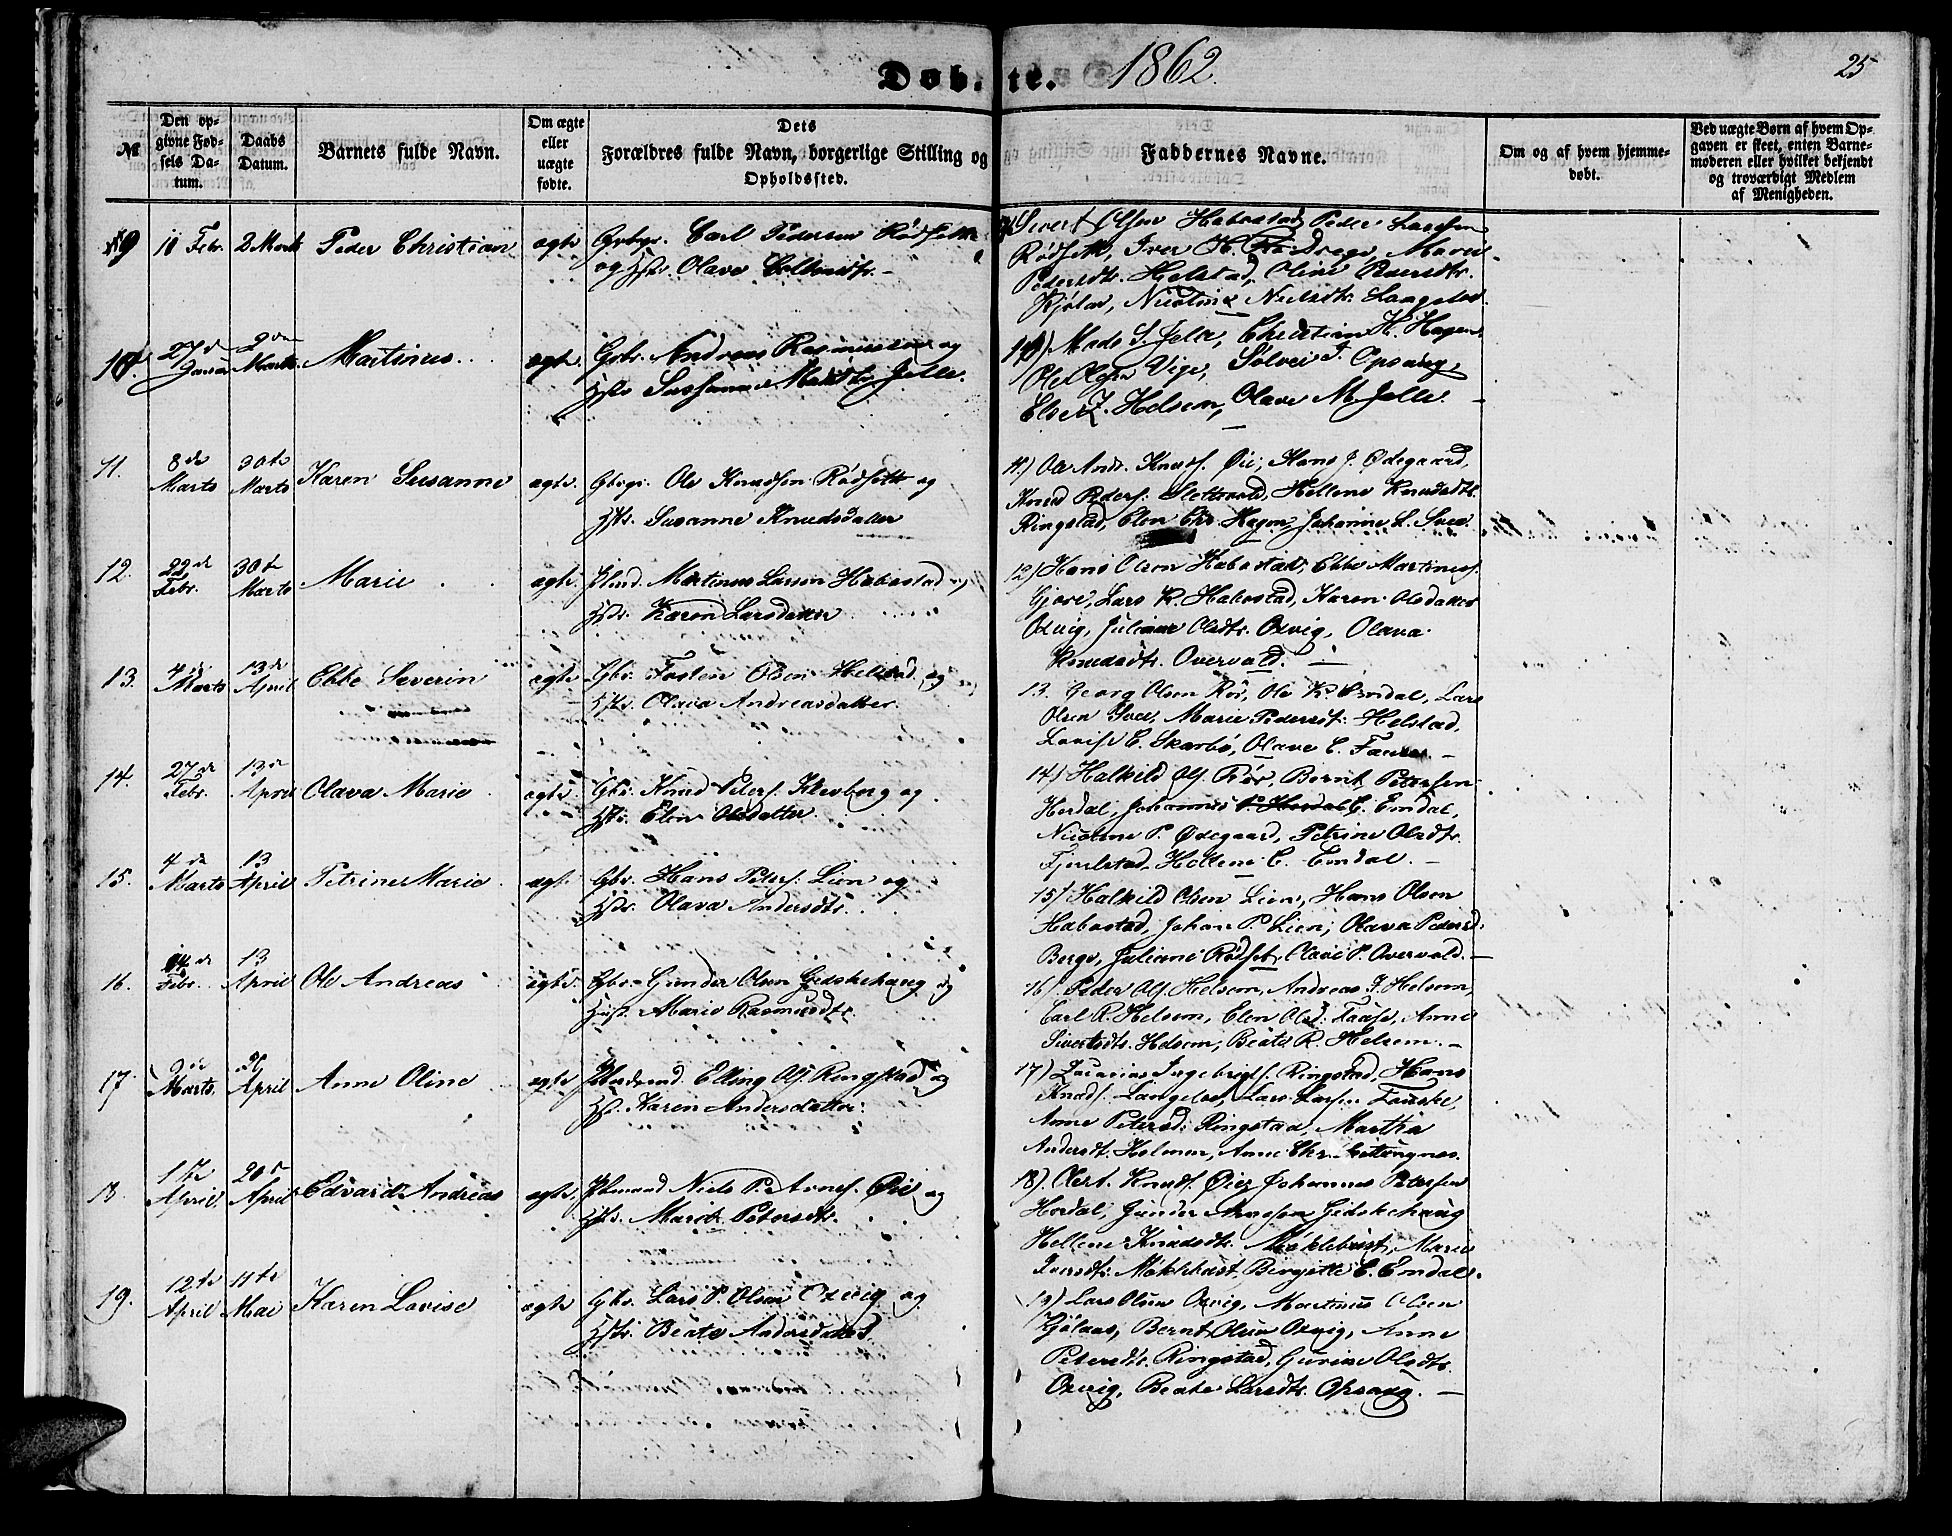 Døbte. 1862.
25
№
Den opgivne Fødsels Datum.
Daabs Datum.
Barnets fulde Navn.
Om ægte eller uægte fødte.
Dets Forældres fulde Navn, borgerlige Stilling og Opholdssted.
Faddernes Navne.
Om og af hvem hjemmedøbt.
Ved uægte Børn af hvem Opgaven er skeet, enten Barnemoderen eller hvilket bekjendt og troværdigt Medlem af Menigheden.
9 Febr. 2 Marts Peder Christian ægte Carl Pedersen Rødseth
og Hstr. Olave
Sivert Olsen Habostad, Peder Larssen
Rødseth, Iver H.
Pedersdtr. Helstad, Oline
Nicoline Nielsdtr.
10 27de Januar 2den Marts Martinus ægte Gbr. Andreas Rasmussen og
Hstr. Susanne Jelle.
Mads S. Jelle, Christian H. Hagen
Ole Olsen Vige, Sølvei J. Opsang,
Else Z. Helsem, Olave M. Jelle.
11. 8de Marts 30te Marts Karen Susanne ægte Ole Knudsen Rødseth og
Hstr. Susanne Knudsdatter
11) Ole Andr. Knuds. Øie, Hans J. Ødegaard,
Knud Peders. Slettevold, Hellene Knudsdtr.
Ringstad, Elen Chr. Hagen, Johanne L. Svee.
12. 22de Febr. 30te Marts Marie ægte Martinus Larsen Habostad og
Hstr. Karen Larsdatter
12) Hans Olsen Habostad, Ebbe Martinus.
Gjøre, Lars K. Habostad, Karen Olsdatter
Oxvig, Juliane Olsdtr. Oxvig, Olava
Knudsdtr. Overvold.
13. 4de Marts 13de April Ebbe Severin ægte Gbr. Tosten Olsen Helstad og
Hstr. Olava Andreasdatter
13. Georg Olsen Rør, Ole K. Emdal, Lars
Olsen Svee, Marie Pedersdt. Helstad,
Lovise E. Skarbø, Olave C.
14. 27de Febr. 13de April Olava Marie ægte Gbr. Knud Peders. Klevberg og
Hstr. Elen Olsdatter
14) Halkild Ols. Rør, Bernt Petersen
Herdal, Johannes P. Herdal C. Emdal,
Nicoline P. Ødegaard, Petrine Olsdtr.
Fjørlstad, Hellene C. Emdal.
15. 4de Marts 13 April Petrine Marie ægt. Gbr. Hans Peters. Lien og
Hstr. Olava Andersdtr.
15) Halkild Olsen Lien, Hans Olsen
Habostad, Johan P. Lien, Olava Pedersd.
Berge, Juliane Rødset, Olave P. Overvold.
16. Febr. 13 April Ole Andreas ægte Gbr. Gunder Olsen Gidskehaug og
Hust. Marie Rasmusdtr.
16) Peder Ols. Helsem, Andreas J. Helsem,
Carl R. Helsem, Elen Olsd. Fauske, Anne
Sivertsdtr. Helsem, Beate R. Helsem.
17. Marts April Anne Oline ægte Elling Ols. Ringstad og
Hst. Karen Andersdatter
17) Ingebrigts. Ringstad, Hans
Knuds. Langelo, Lars Lars. Fauske,
Anne Petersd. Ringstad, Martha
Andersdt. Holmen, Anne Chr.
18 April 20de April Edvard Andreas ægte Niels P. Øie og
Hstr. Marit Petersdtr.
18) Olert. Knuds. Øie, Johannes Petersen
Herdal, Gunder Gidskehaug
Hellene Knudsdtr. Møklebust, Marie
Iversdtr. Møklebust, Bergitte C. Emdal.
19. 12te April 11te Mai Karen Lovise ægte Gbr. Lars P. Olsen Oxvig og
Hstr. Beate Andersdatter
19) Lars Olsen Oxvig, Martinus Olsen
Bernt Olsen Oxvig, Anne
Petersdtr. Ringstad, Gurine Olsdtr.
Oxvig, Beate Larsdtr. Opsang.